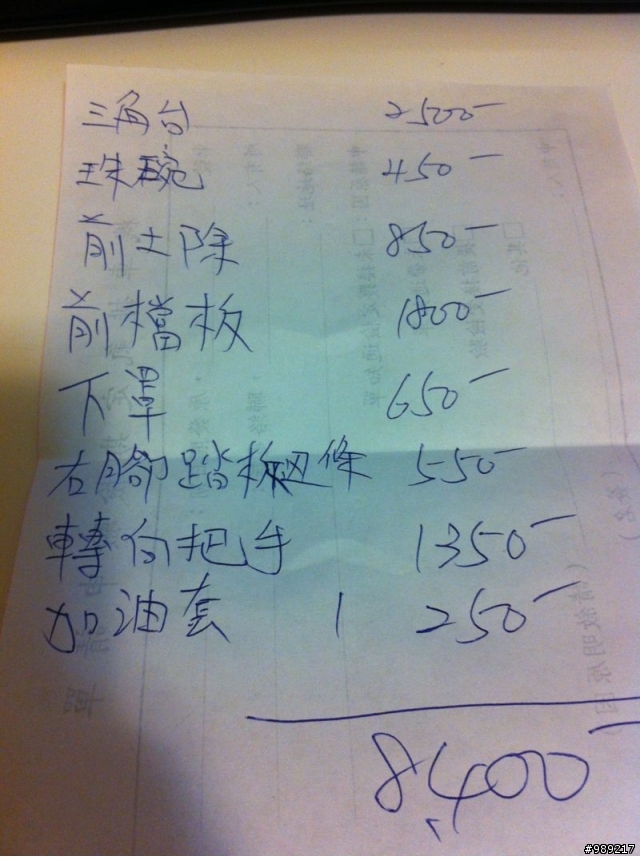 三角台 2500-
珠碗 450-
前土除 850-
前檔板 1800-
下罩 650-
右腳踏板边條 550-
轉向把手 1350-
加油套 1 250-
8,400-
#989217